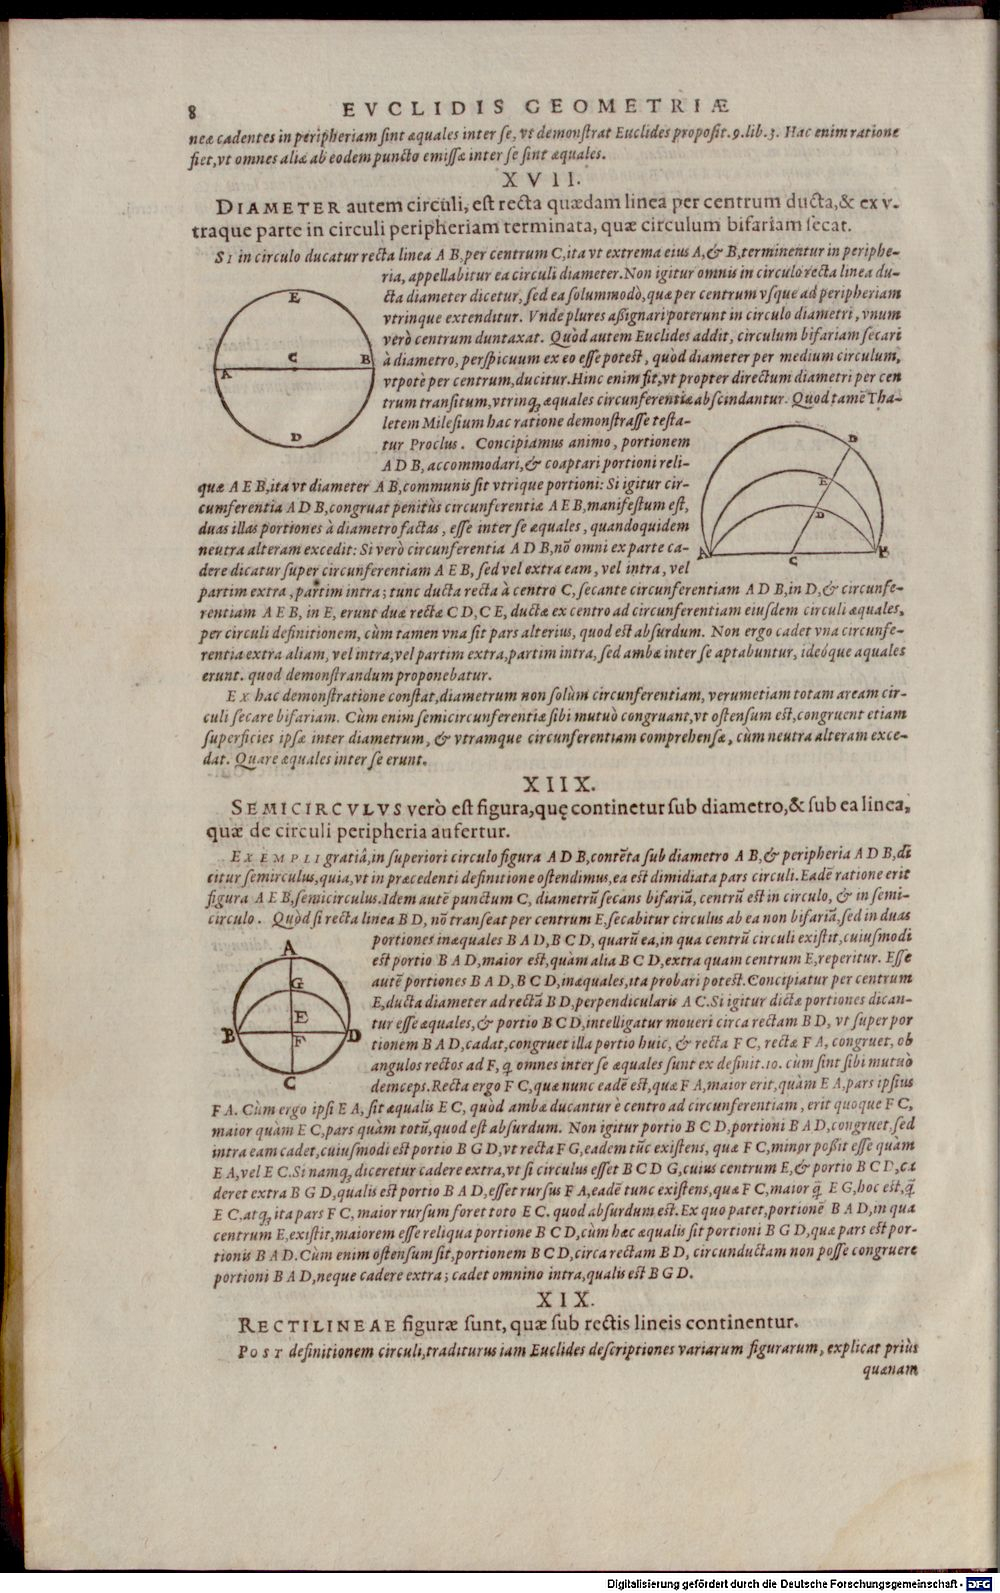 8 EVCLIDIS GEOMETRIÆ
neæ cadentes in peripheriam ſint æquales inter ſe, vt demonſtrat Euclides propoſit. 9. lib. 3. Hac enim ratione
fiet, vt omnes aliæ ab eodem puncto emiſſæ inter ſe ſint æquales.
XVII.
DIAMETER autem circuli, eſt recta quædam linea per centrum ducta, & ex v-
traque parte in circuli peripheriam terminata, quæ circulum bifariam ſecat.
SI in circulo ducatur recta linea A B, per centrum C, ita vt extrema eius A, & B, terminentur in periphe-
ria, appellabitur ea circuli diameter. Non igitur omnis in circulo recta linea du-
cta diameter dicetur, ſed ea ſolummodò, quæ per centrum vſque ad peripheriam
vtrinque extenditur. Vnde plures aßignari poterunt in circulo diametri, vnum
verò centrum duntaxat. Quòd autem Euclides addit, circulum bifariam ſecari
à diametro, perſpicuum ex eo eſſe poteſt, quòd diameter per medium circulum,
vtpotè per centrum, ducitur. Hinc enim fit, vt propter directum diametri per cen
trum tranſitum, vtrinq; æquales circunferentiæ abſcindantur. Quod tamē Tha-
letem Mileſium hac ratione demonſtraſſe teſta-
tur Proclus. Concipiamus animo, portionem
A D B, accommodari, & coaptari portioni reli-
quæ A E B, ita vt diameter A B, communis ſit vtrique portioni: Si igitur cir-
cumferentia A D B, congruat penitùs circunferentiæ A E B, manifeſtum eſt,
duas illas portiones à diametro factas, eſſe inter ſe æquales, quandoquidem
neutra alteram excedit: Si verò circunferentia A D B, nō omni ex parte ca-
dere dicatur ſuper circunferentiam A E B, ſed vel extra eam, vel intra, vel
partim extra, partim intra; tunc ducta recta à centro C, ſecante circunferentiam A D B, in D, & circunfe-
rentiam A E B, in E, erunt duæ rectæ C D, C E, ductæ ex centro ad circunferentiam eiuſdem circuli æquales,
per circuli definitionem, cùm tamen vna ſit pars alterius, quod eſt abſurdum. Non ergo cadet vna circunfe-
rentia extra aliam, vel intra, vel partim extra, partim intra, ſed ambæ inter ſe aptabuntur, ideóque æquales
erunt. quod demonſtrandum proponebatur.
EX hac demonſtratione conſtat, diametrum non ſolùm circunferentiam, verumetiam totam aream cir-
culi ſecare bifariam. Cùm enim ſemicircunferentiæ ſibi mutuò congruant, vt oſtenſum eſt, congruent etiam
ſuperficies ipſæ inter diametrum, & vtramque circunferentiam comprehenſæ, cùm neutra alteram exce-
dat. Quare æquales inter ſe erunt.
XIIX.
SEMICIRCVLVS verò eſt figura, quę continetur ſub diametro, & ſub ea linea,
quæ de circuli peripheria aufertur.
EXEMPLI gratiâ, in ſuperiori circulo figura A D B, contēta ſub diametro A B, & peripheria A D B, di
citur ſemicirculus, quia, vt in præcedenti definitione oſtendimus, ea eſt dimidiata pars circuli. Eadē ratione erit
figura A E B, ſemicirculus. Idem autē punctum C, diametrū ſecans bifariā, centrū eſt in circulo, & in ſemi-
circulo. Quòd ſi recta linea B D, nō tranſeat per centrum E, ſecabitur circulus ab ea non bifariā, ſed in duas
portiones inæquales B A D, B C D, quarū ea, in qua centrū circuli exiſtit, cuiuſmodi
eſt portio B A D, maior eſt, quàm alia B C D, extra quam centrum E, reperitur. Eſſe
autē portiones B A D, B C D, inæquales, ita probari poteſt. Concipiatur per centrum
E, ducta diameter ad rectā B D, perpendicularis A C. Si igitur dictæ portiones dican-
tur eſſe æquales, & portio B C D, intelligatur moueri circa rectam B D, vt ſuper por
tionem B A D, cadat, congruet illa portio huic, & recta F C, rectæ F A, congruet, ob
angulos rectos ad F, q omnes inter ſe æquales ſunt ex definit. 10. cùm ſint ſibi mutuò
deinceps. Recta ergo F C, quæ nunc eadē eſt, quæ F A, maior erit, quàm E A, pars ipſius
F A. Cùm ergo ipſi E A, ſit æqualis E C, quòd ambæ ducantur è centro ad circunferentiam, erit quoque F C,
maior quàm E C, pars quàm totū, quod eſt abſurdum. Non igitur portio B C D, portioni B A D, congruet, ſed
intra eam cadet, cuiuſmodi eſt portio B G D, vt recta F G, eadem tūc exiſtens, quæ F C, minor poßit eſſe quàm
E A, vel E C. Si namq; diceretur cadere extra, vt ſi circulus eſſet B C D G, cuius centrum E, & portio B C D, ca
deret extra B G D, qualis eſt portio B A D, eſſet rurſus F A, eadē tunc exiſtens, quæ F C, maior q̄ E G, hoc eſt, q̄
E C, atq; ita pars F C, maior rurſum foret toto E C. quod abſurdum eſt. Ex quo patet, portionē B A D, in qua
centrum E, exiſtit, maiorem eſſe reliqua portione B C D, cùm hæc æqualis ſit portioni B G D, quæ pars eſt por-
tionis B A D. Cùm enim oſtenſum ſit, portionem B C D, circa rectam B D, circunductam non poſſe congruere
portioni B A D, neque cadere extra; cadet omnino intra, qualis eſt B G D.
XIX.
RECTILINEAE figuræ ſunt, quæ ſub rectis lineis continentur.
POST definitionem circuli, traditurus iam Euclides deſcriptiones variarum figurarum, explicat priùs
quænam
E
C
A
B
D
D
E
D
A
C
B
A
G
E
B
F
D
C
Digitalisierung gefördert durch die Deutsche Forschungsgemeinschaft - DFG